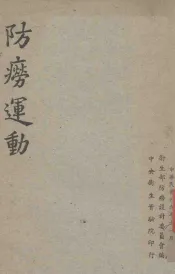 防癆運動
衞生部防癆設計委員會編
中央衞生實驗院印行